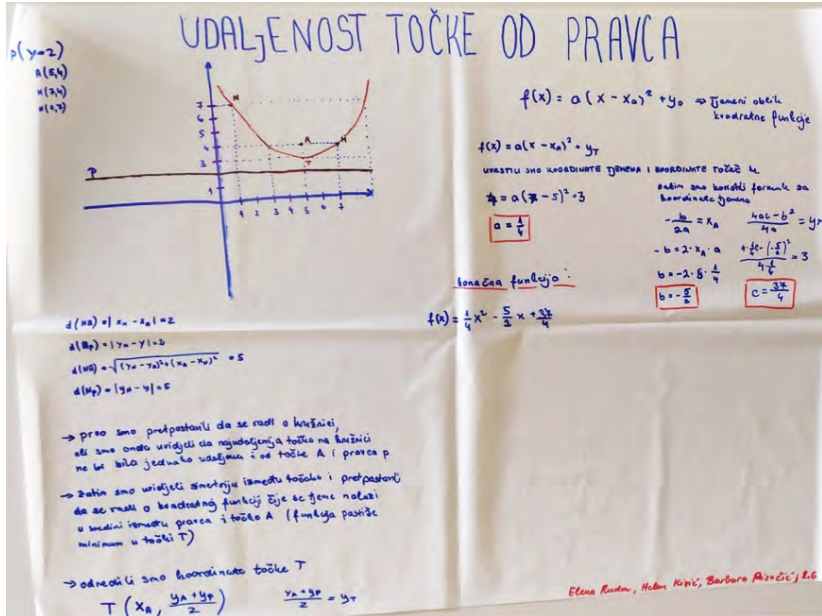 UDALjENOST TOČKE OD PRAVCA
p(y=2)
A(5,4)
M(7,4)
N(1,7)
7
6
5
4
3
1
1 2 3 4 5 6 7
P
N
A
M
T
f(x) = a(x - x₀)² + y₀ ⇒ Tjemeni oblik
kvadratne funkcije
f(x) = a(x - x_A)² + y_T
UVRSTILI SMO KOORDINATE TJEMENA I KOORDINATE TOČKE M.
4 = a(7 - 5)² + 3
a = 1/4
zatim smo koristili formule za
koordinate tjemena
-b/2a = x_A
- b = 2 · x_A · a
b = -2 · 5 · 1/4
b = -5/2
4ac - b² / 4a = y_T
= 3
c = 37/4
konačna funkcija:
f(x) = 1/4 x² - 5/2 x + 37/4
d(MA) = | x_M - x_A | = 2
d(M,p) = | y_M - y | = 2
d(NA) = √((y_N - y_A)² + (x_A - x_N)²) = 5
d(N,p) = | y_N - y | = 5
→ prvo smo pretpostavili da se radi o kružnici,
ali smo onda uvidjeli da najudaljenija točka na kružnici
ne bi bila jednako udaljena i od točke A i pravca p
→ zatim smo uvidjeli simetriju između točaka i pretpostavili
da se radi o kvadratnoj funkciji čije se tjeme nalazi
u sredini između pravca i točke A (funkcija postiže
minimum u točki T)
→ odredili smo koordinate točke T
T (x_A, y_A + y_P / 2) y_A + y_P / 2 = y_T
Elena Barbara 2.G